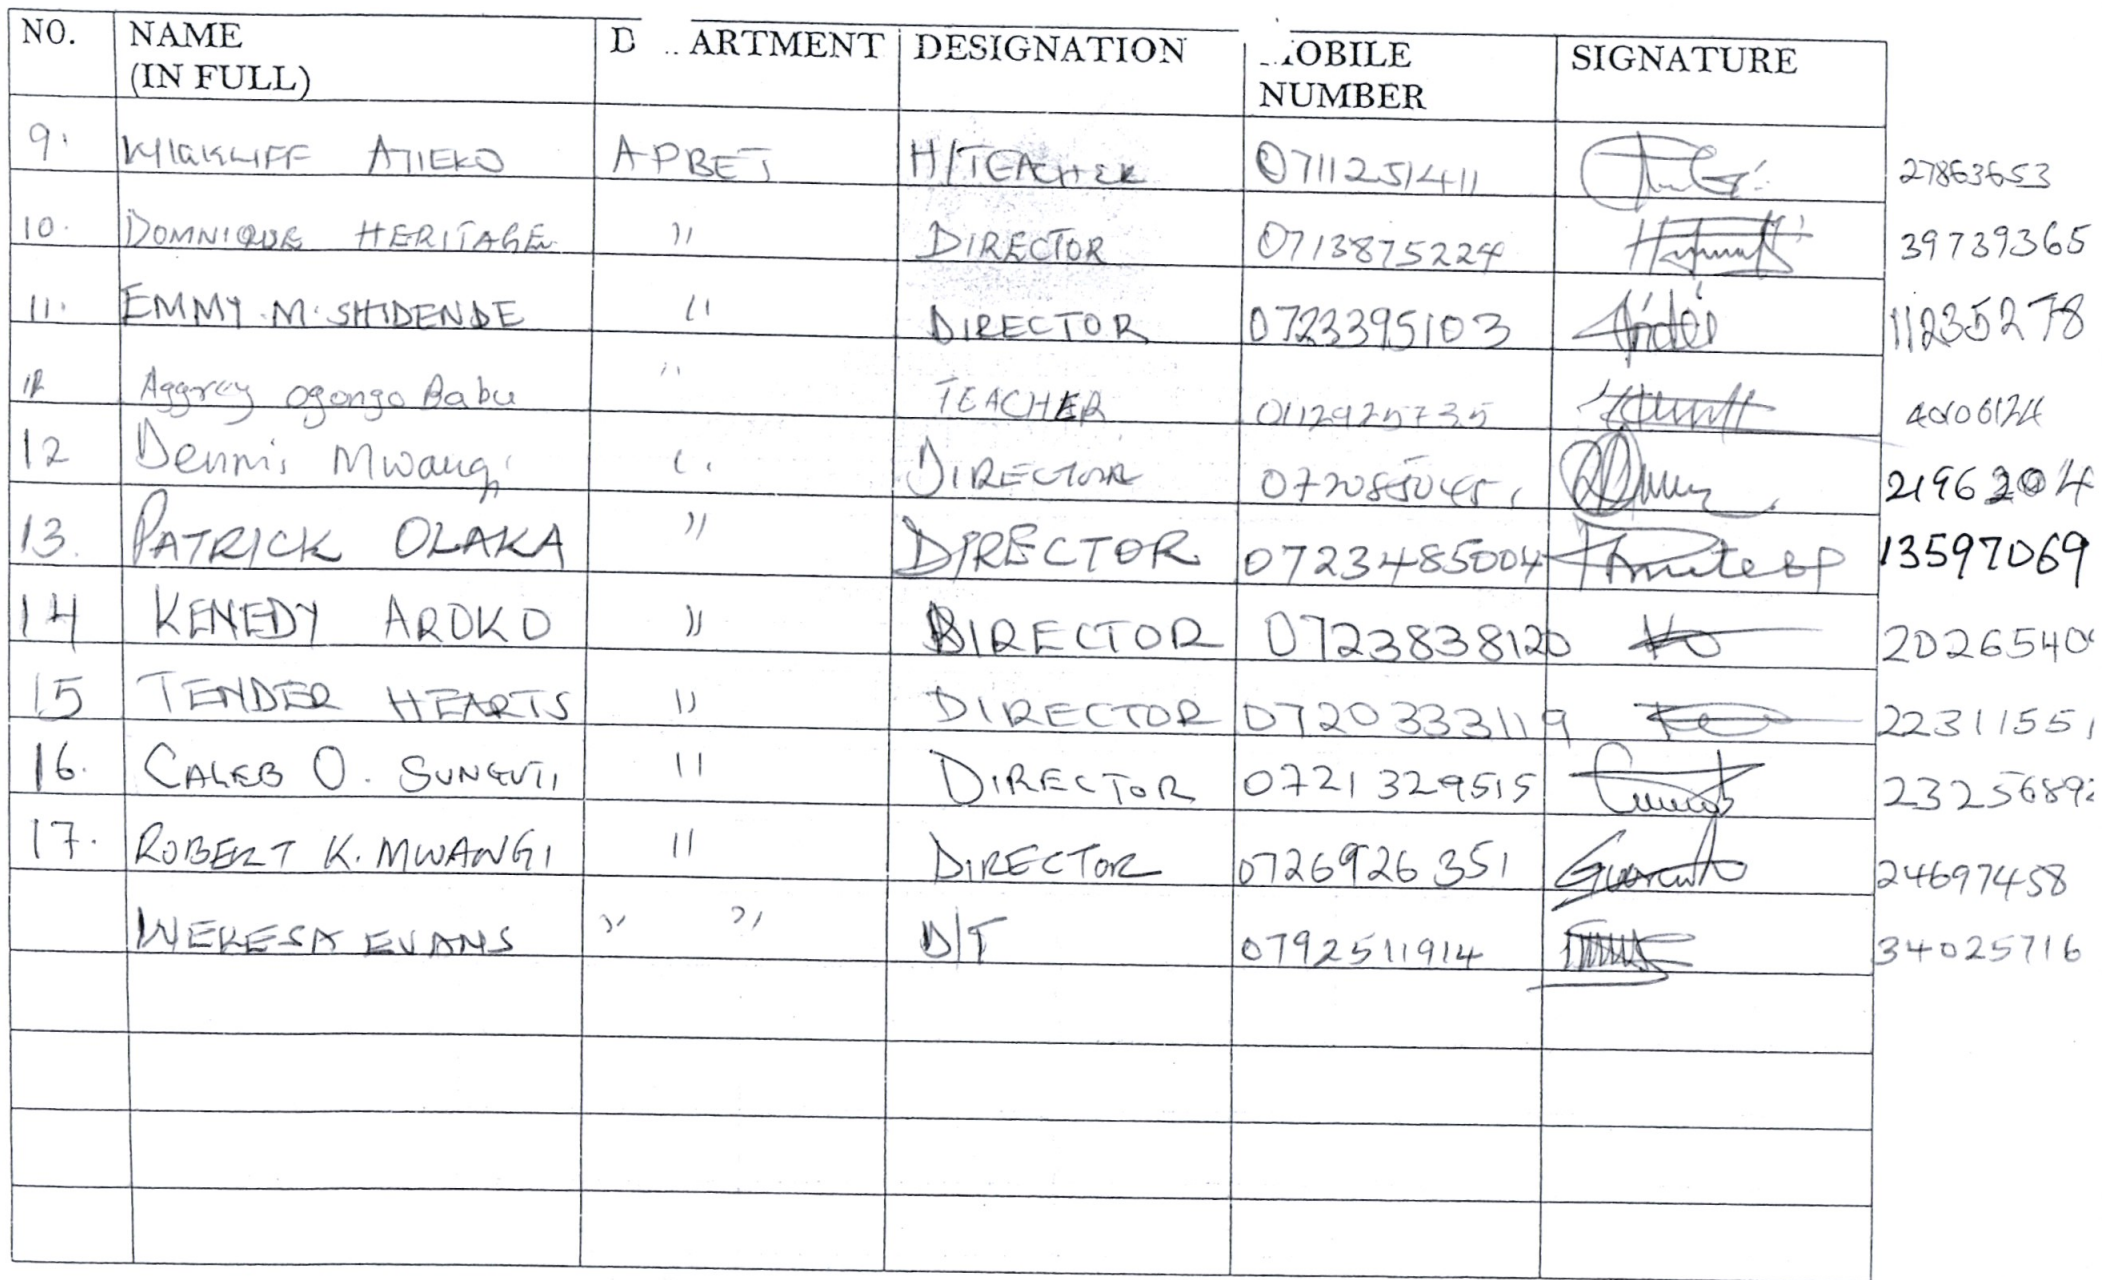 NO. NAME D ARTMENT DESIGNATION OBILE SIGNATURE
(IN FULL) NUMBER
9. ATIEKO APBET H/TEACHER 0711251411 27863653
10. DOMNIQUE HERITAGE " DIRECTOR 0713875224 39739365
11. EMMY M. SHIDENDE " DIRECTOR 0723395103 11235278
Aggrey Ogongo Babu " TEACHER
12 Dennis Mwangi " DIRECTOR 21962204
13. PATRICK OLAKA " DIRECTOR 0723485004 13597069
14 KENEDY AROKO " DIRECTOR 0723838120 2026540
15 TENDER HEARTS " DIRECTOR 0720333119 22311551
16. CALEB O. SUNGUTI " DIRECTOR 0721329515 2325689
17. ROBERT K. MWANGI " DIRECTOR 0726926351 24697458
WEKESA EVANS " " D/T 0792511914 34025716